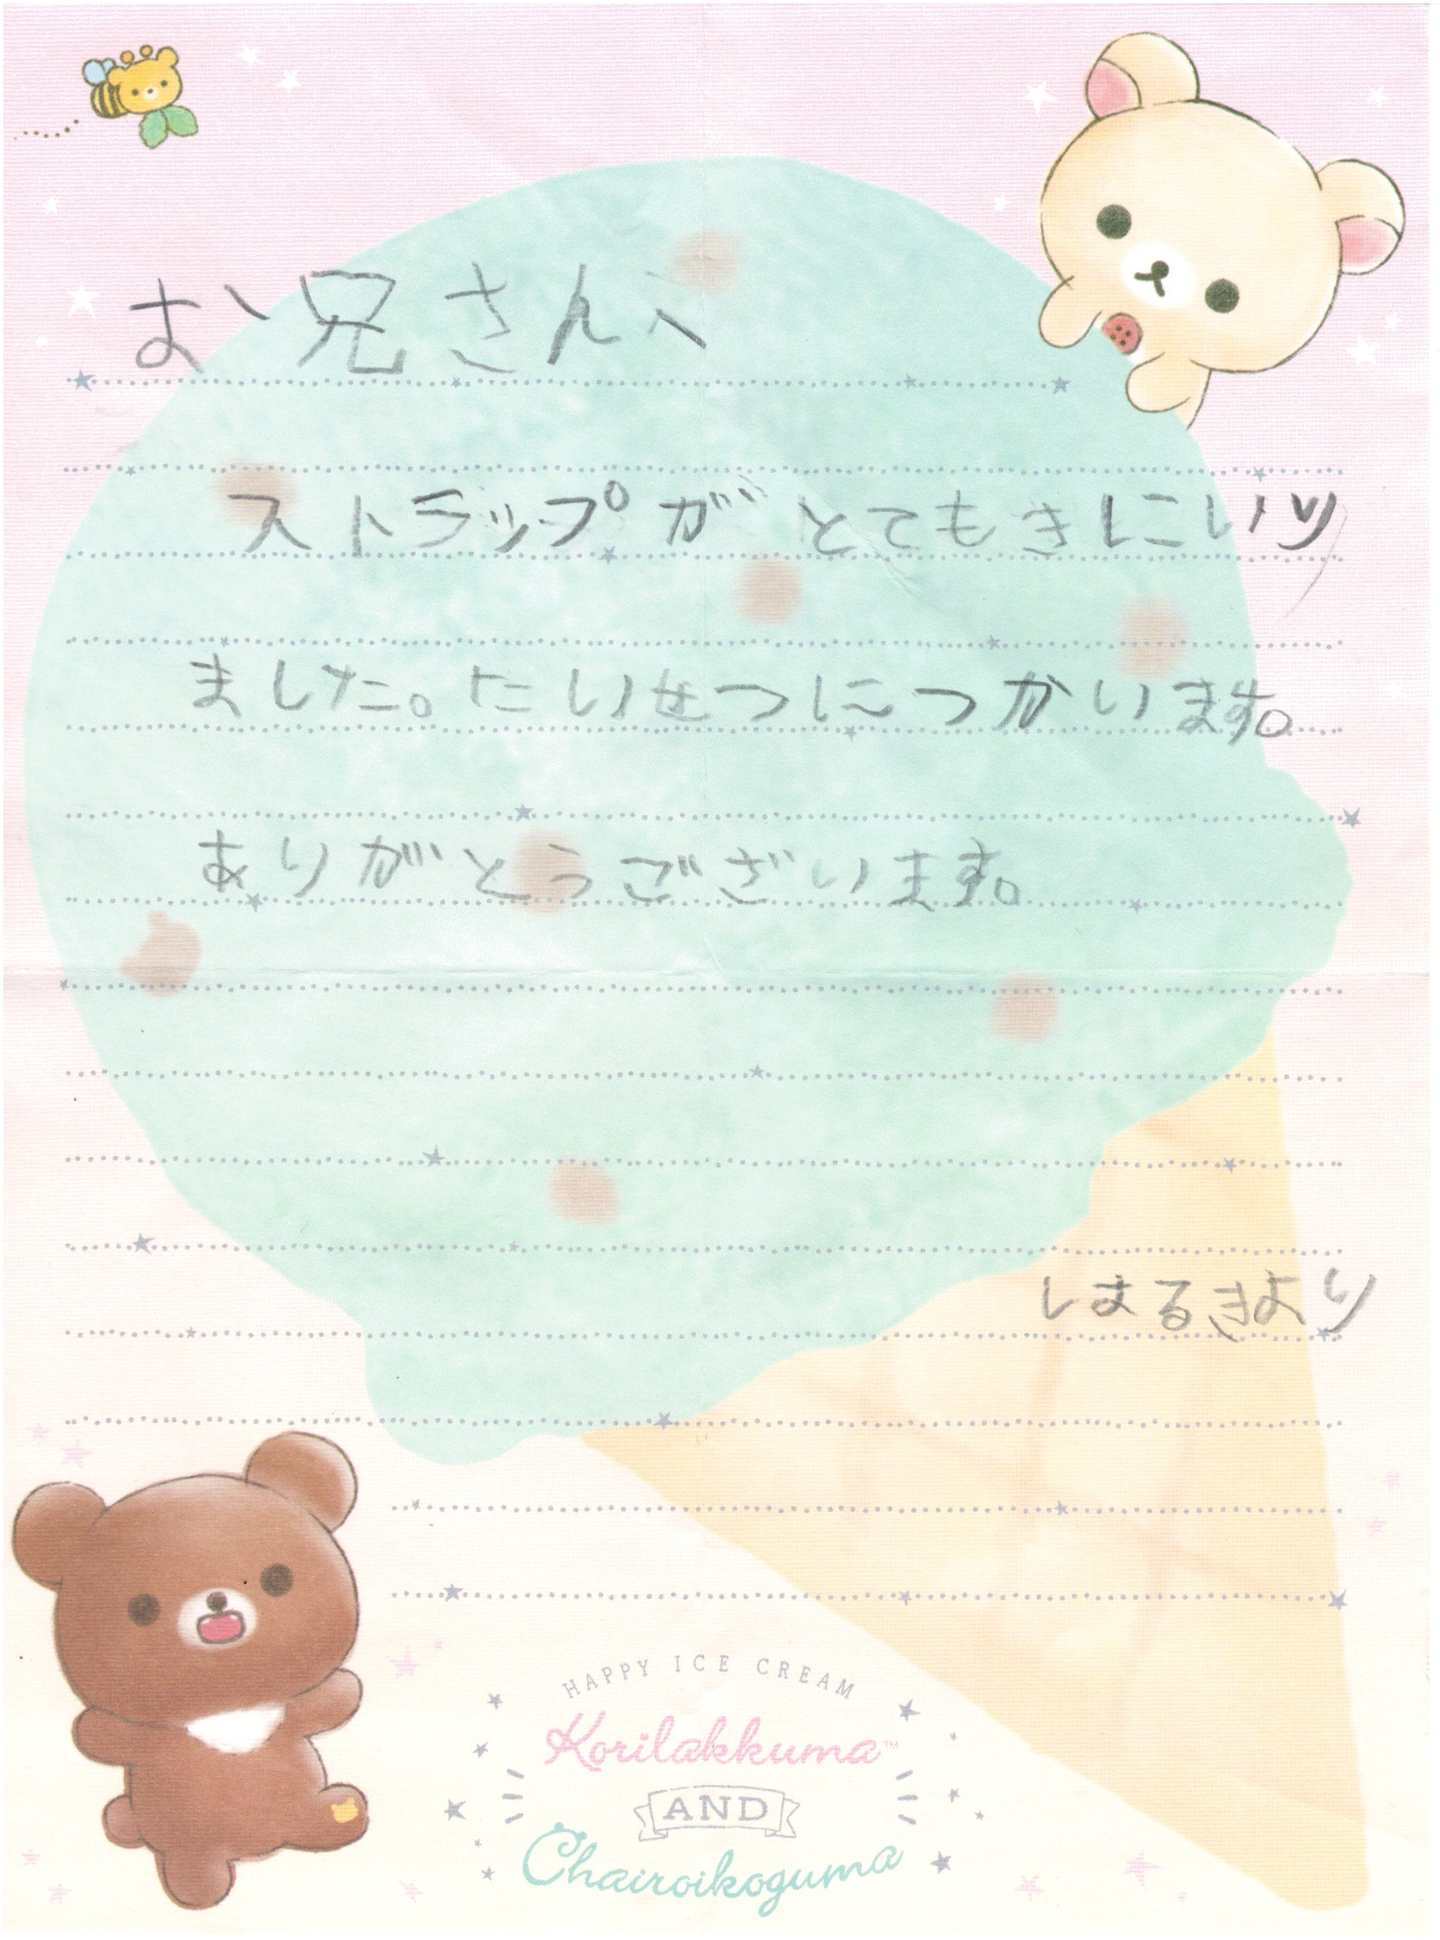 お兄さん、
ストラップがとてもきにいり
ました。たいせつにつかいます。
ありがとうございます。
しまるきより
HAPPY ICE CREAM
Korilakkuma™
AND
Chairoikoguma